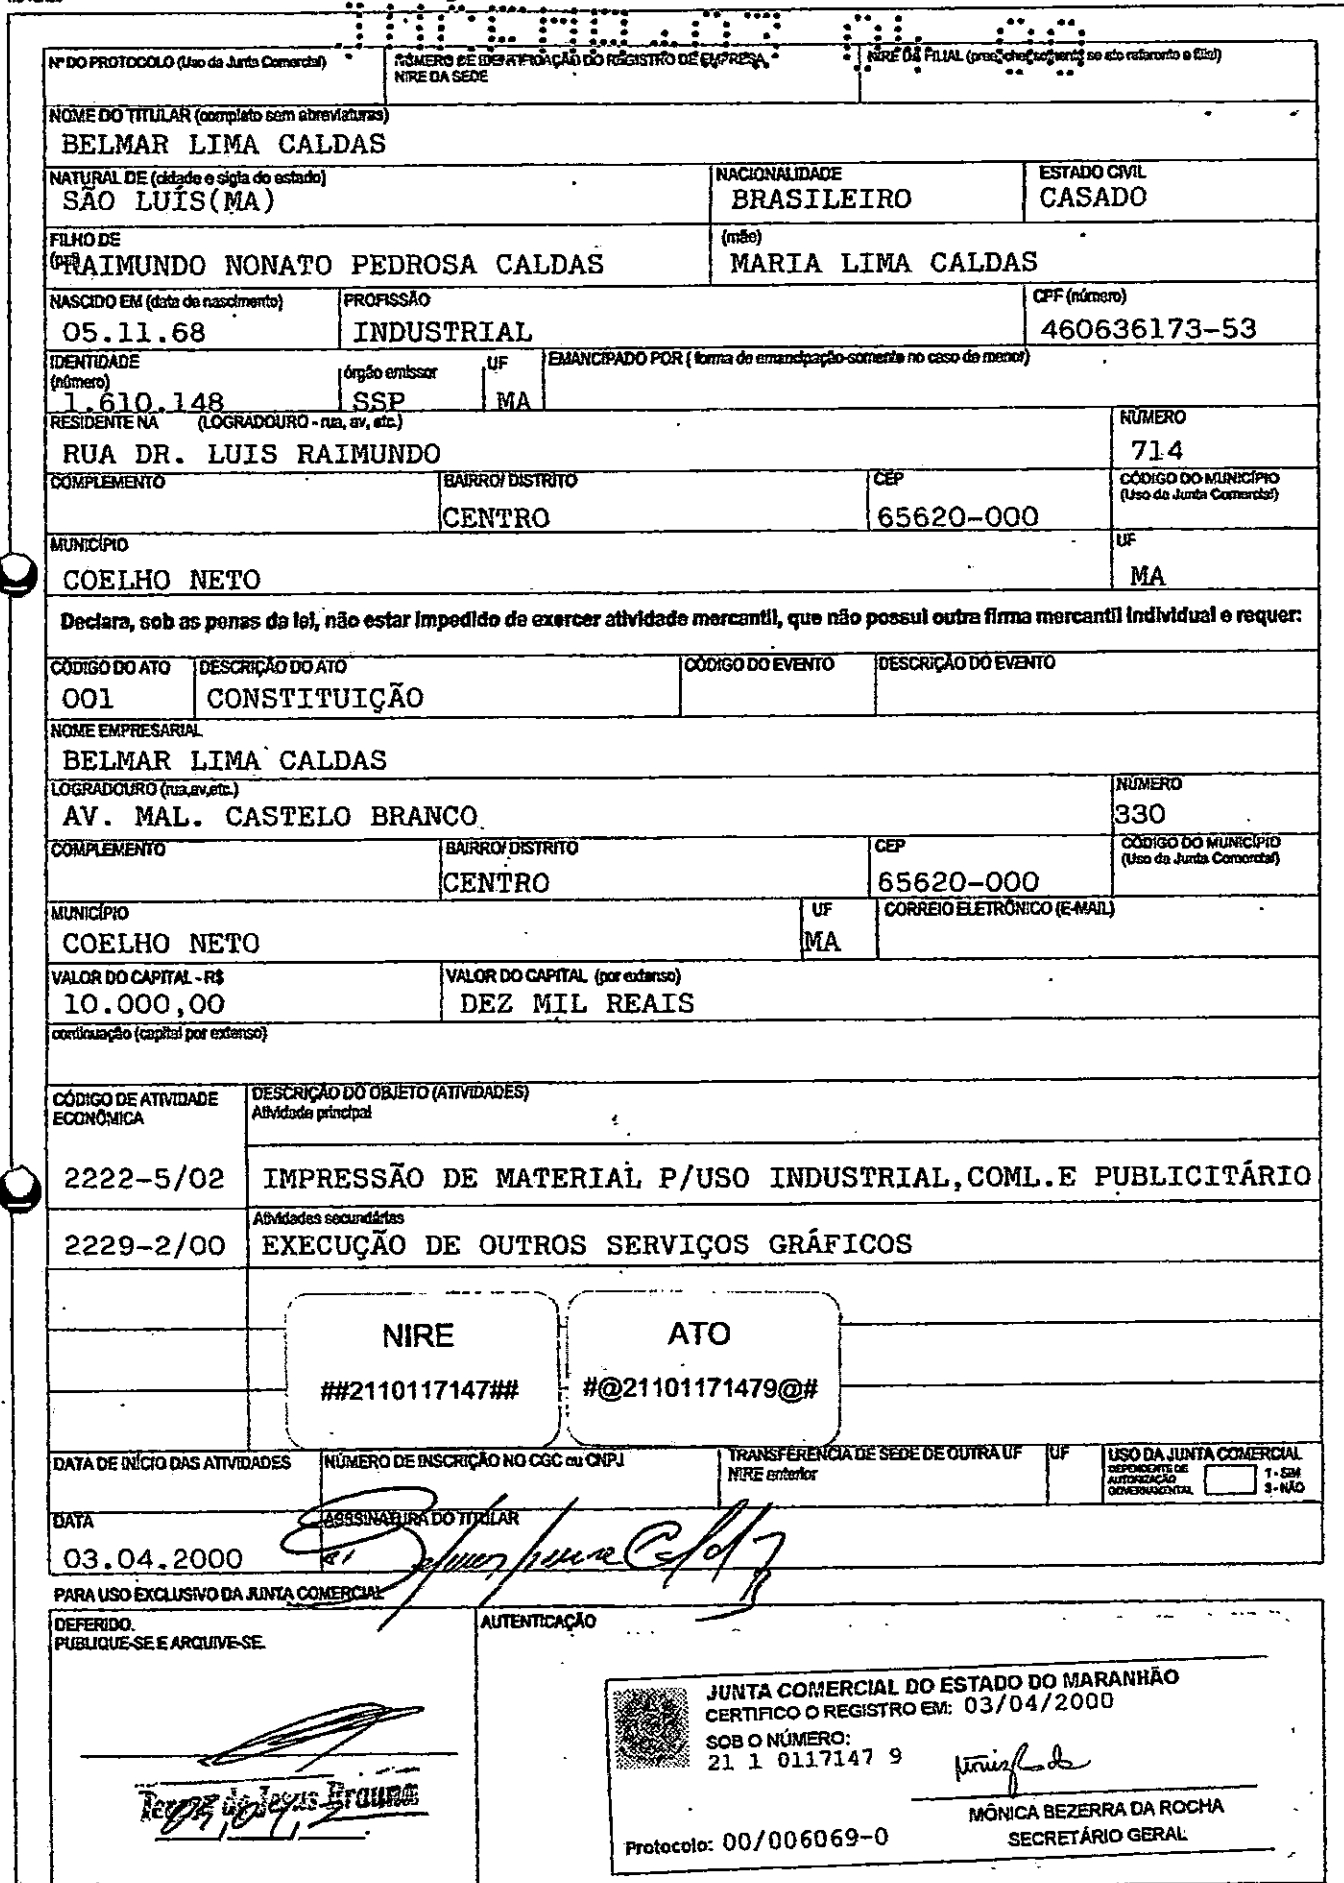 Nº DO PROTOCOLO (Uso da Junta Comercial)
NÚMERO DE IDENTIFICAÇÃO DO REGISTRO DE EMPRESA
NIRE DA SEDE
NIRE DA FILIAL (preencher somente se ato referente a filial)
NOME DO TITULAR (completo sem abreviaturas)
BELMAR LIMA CALDAS
NATURAL DE (cidade e sigla do estado)
SÃO LUÍS(MA)
NACIONALIDADE
BRASILEIRO
ESTADO CIVIL
CASADO
FILHO DE
(pai)
RAIMUNDO NONATO PEDROSA CALDAS
(mãe)
MARIA LIMA CALDAS
NASCIDO EM (data de nascimento)
05.11.68
PROFISSÃO
INDUSTRIAL
CPF (número)
460636173-53
IDENTIDADE
(número)
1.610.148
órgão emissor
SSP
UF
MA
EMANCIPADO POR ( forma de emancipação-somente no caso de menor)
RESIDENTE NA (LOGRADOURO - rua, av, etc.)
RUA DR. LUIS RAIMUNDO
NÚMERO
714
COMPLEMENTO
BAIRRO/ DISTRITO
CENTRO
CEP
65620-000
CÓDIGO DO MUNICÍPIO
(Uso da Junta Comercial)
MUNICÍPIO
COELHO NETO
UF
MA
Declara, sob as penas da lei, não estar impedido de exercer atividade mercantil, que não possui outra firma mercantil individual e requer:
CÓDIGO DO ATO
001
DESCRIÇÃO DO ATO
CONSTITUIÇÃO
CÓDIGO DO EVENTO
DESCRIÇÃO DO EVENTO
NOME EMPRESARIAL
BELMAR LIMA CALDAS
LOGRADOURO (rua,av,etc.)
AV. MAL. CASTELO BRANCO
NÚMERO
330
COMPLEMENTO
BAIRRO/ DISTRITO
CENTRO
CEP
65620-000
CÓDIGO DO MUNICÍPIO
(Uso da Junta Comercial)
MUNICÍPIO
COELHO NETO
UF
MA
CORREIO ELETRÔNICO (E-MAIL)
VALOR DO CAPITAL - R$
10.000,00
VALOR DO CAPITAL (por extenso)
DEZ MIL REAIS
continuação (capital por extenso)
CÓDIGO DE ATIVIDADE
ECONÔMICA
DESCRIÇÃO DO OBJETO (ATIVIDADES)
Atividade principal
2222-5/02
IMPRESSÃO DE MATERIAL P/USO INDUSTRIAL,COML.E PUBLICITÁRIO
Atividades secundárias
2229-2/00
EXECUÇÃO DE OUTROS SERVIÇOS GRÁFICOS
NIRE
##2110117147##
ATO
#@21101171479@#
DATA DE INÍCIO DAS ATIVIDADES
NÚMERO DE INSCRIÇÃO NO CGC ou CNPJ
TRANSFERÊNCIA DE SEDE DE OUTRA UF
NIRE anterior
UF
USO DA JUNTA COMERCIAL
DEPENDENTE DE
AUTORIZAÇÃO
GOVERNAMENTAL
1 - SIM
3 - NÃO
DATA
03.04.2000
ASSSINATURA DO TITULAR
PARA USO EXCLUSIVO DA JUNTA COMERCIAL
DEFERIDO.
PUBLIQUE-SE E ARQUIVE-SE.
AUTENTICAÇÃO
JUNTA COMERCIAL DO ESTADO DO MARANHÃO
CERTIFICO O REGISTRO EM: 03/04/2000
SOB O NÚMERO:
21 1 0117147 9
MÔNICA BEZERRA DA ROCHA
SECRETÁRIO GERAL
Protocolo: 00/006069-0
de Jesus